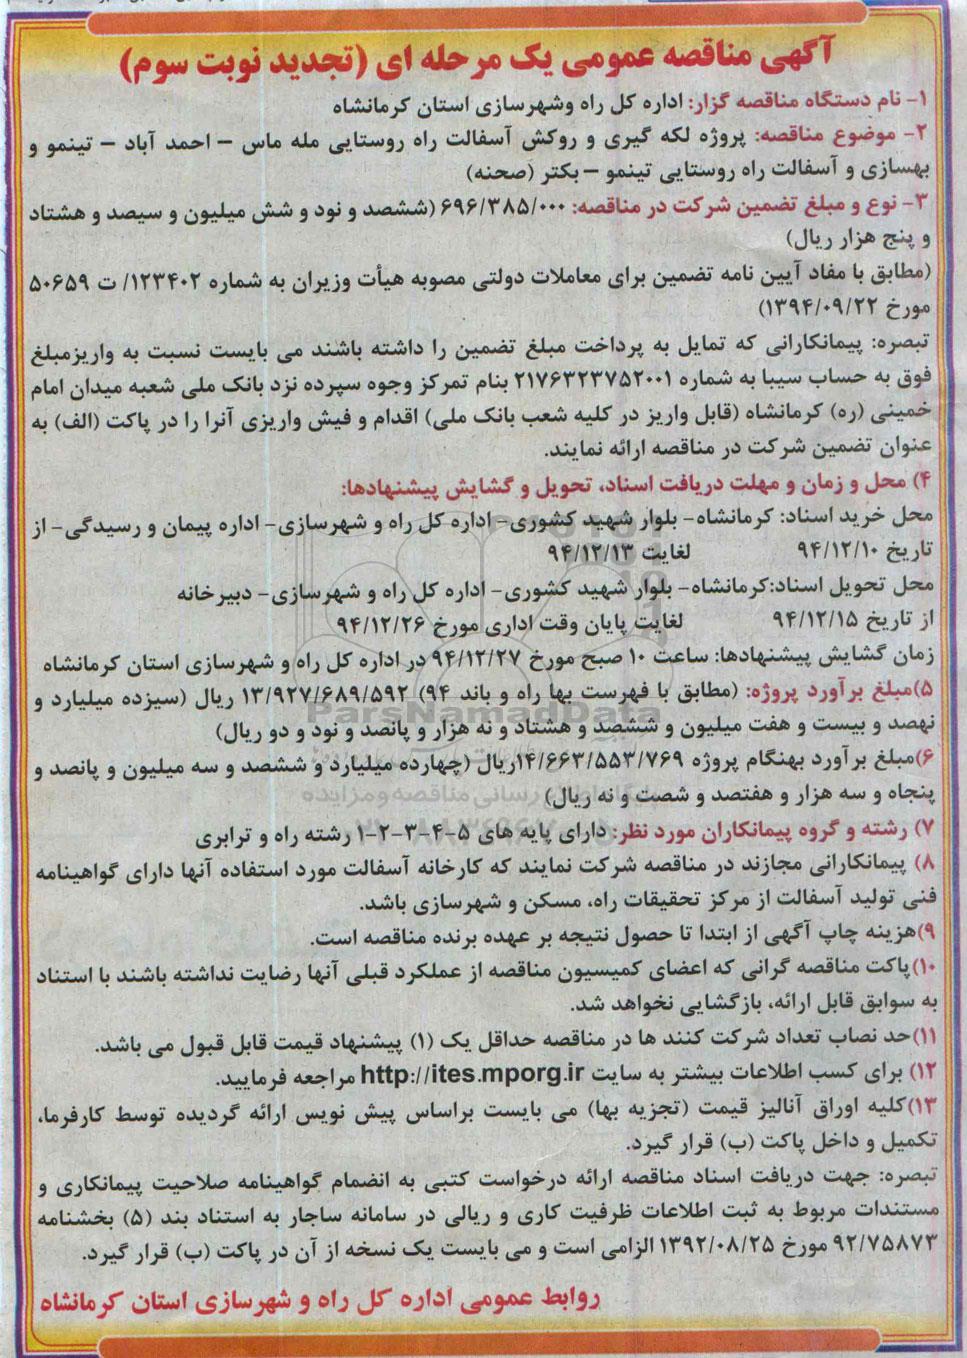 آگهی مناقصه عمومی یک مرحله ای (تجدید نوبت سوم)
۱- نام دستگاه مناقصه گزار: اداره کل راه وشهرسازی استان کرمانشاه
۲- موضوع مناقصه: پروژه لکه گیری و روکش آسفالت راه روستایی مله ماس – احمد آباد – تینمو و
بهسازی و آسفالت راه روستایی تینمو –بکتر (صحنه)
۳- نوع و مبلغ تضمین شرکت در مناقصه: ۶۹۶/۳۸۵/۰۰۰ (ششصد و نود و شش میلیون و سیصد و هشتاد
و پنج هزار ریال)
(مطابق با مفاد آیین نامه تضمین برای معاملات دولتی مصوبه هیأت وزیران به شماره ۱۲۳۴۰۲/ ت ۵۰۶۵۹
مورخ ۱۳۹۴/۰۹/۲۲)
تبصره: پیمانکارانی که تمایل به پرداخت مبلغ تضمین را داشته باشند می بایست نسبت به واریزمبلغ
فوق به حساب سیبا به شماره ۲۱۷۶۳۲۳۷۵۲۰۰۱ بنام تمرکز وجوه سپرده نزد بانک ملی شعبه میدان امام
خمینی (ره) کرمانشاه (قابل واریز در کلیه شعب بانک ملی) اقدام و فیش واریزی آنرا را در پاکت (الف) به
عنوان تضمین شرکت در مناقصه ارائه نمایند.
۴) محل و زمان و مهلت دریافت اسناد، تحویل و گشایش پیشنهادها:
محل خرید اسناد: کرمانشاه- بلوار شهید کشوری- اداره کل راه و شهرسازی- اداره پیمان و رسیدگی- از
تاریخ ۹۴/۱۲/۱۰ لغایت ۹۴/۱۲/۱۳
محل تحویل اسناد:کرمانشاه- بلوار شهید کشوری- اداره کل راه و شهرسازی- دبیرخانه
از تاریخ ۹۴/۱۲/۱۵ لغایت پایان وقت اداری مورخ ۹۴/۱۲/۲۶
زمان گشایش پیشنهادها: ساعت ۱۰ صبح مورخ ۹۴/۱۲/۲۷ در اداره کل راه و شهرسازی استان کرمانشاه
۵)مبلغ برآورد پروژه: (مطابق با فهرست بها راه و باند ۹۴) ۱۳/۹۲۷/۶۸۹/۵۹۲ ریال (سیزده میلیارد و
ParsNamadData
نهصد و بیست و هفت میلیون و ششصد و هشتاد و نه هزار و پانصد و نود و دو ریال)
۶)مبلغ برآورد بهنگام پروژه ۱۴/۶۶۳/۵۵۳/۷۶۹ریال (چهارده میلیارد و ششصد و سه میلیون و پانصد و
پنجاه و سه هزار و هفتصد و شصت و نه ریال)
۷) رشته و گروه پیمانکاران مورد نظر: دارای پایه های ۵-۴-۳-۲-۱ رشته راه و ترابری
۸) پیمانکارانی مجازند در مناقصه شرکت نمایند که کارخانه آسفالت مورد استفاده آنها دارای گواهینامه
فنی تولید آسفالت از مرکز تحقیقات راه، مسکن و شهرسازی باشد.
۹)هزینه چاپ آگهی از ابتدا تا حصول نتیجه بر عهده برنده مناقصه است.
۱۰)پاکت مناقصه گرانی که اعضای کمیسیون مناقصه از عملکرد قبلی آنها رضایت نداشته باشند با استناد
به سوابق قابل ارائه، بازگشایی نخواهد شد.
۱۱)حد نصاب تعداد شرکت کنند ها در مناقصه حداقل یک (۱) پیشنهاد قیمت قابل قبول می باشد.
۱۲) برای کسب اطلاعات بیشتر به سایت http://ites.mporg.ir مراجعه فرمایید.
۱۳)کلیه اوراق آنالیز قیمت (تجزیه بها) می بایست براساس پیش نویس ارائه گردیده توسط کارفرما،
تکمیل و داخل پاکت (ب) قرار گیرد.
تبصره: جهت دریافت اسناد مناقصه ارائه درخواست کتبی به انضمام گواهینامه صلاحیت پیمانکاری و
مستندات مربوط به ثبت اطلاعات ظرفیت کاری و ریالی در سامانه ساجار به استناد بند (۵) بخشنامه
۹۲/۷۵۸۷۳ مورخ ۱۳۹۲/۰۸/۲۵ الزامی است و می بایست یک نسخه از آن در پاکت (ب) قرار گیرد.
روابط عمومی اداره کل راه و شهرسازی استان کرمانشاه